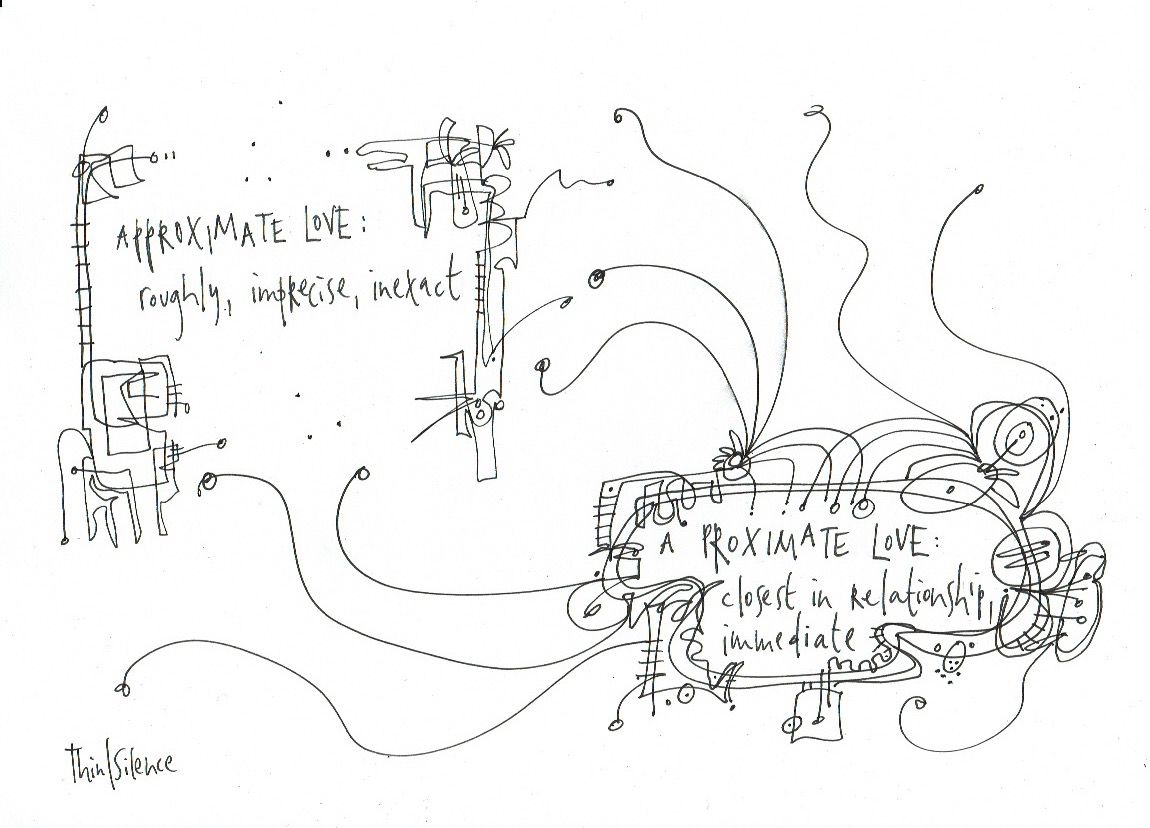 APPROXIMATE LOVE:
roughly, imprecise, inexact
A PROXIMATE LOVE:
closest in relationship,
immediate
Thin/Silence